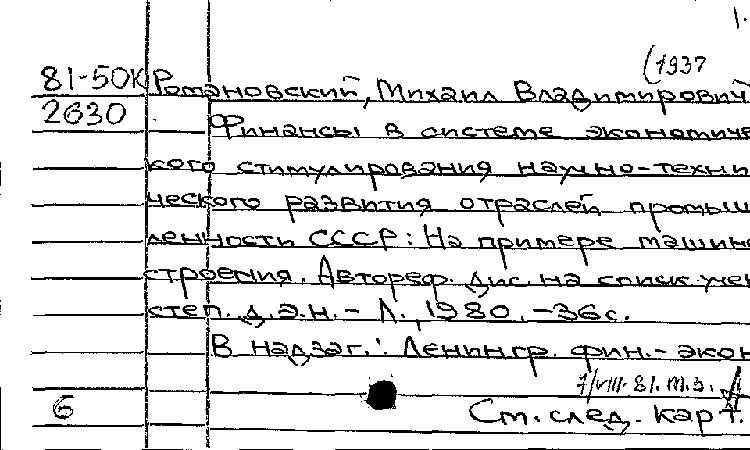 1.
(1937
81-50к Романовский, Михаил Владимирович
2630 Финансы в системе экономичес
кого стимулирования научно-техни
ческого развития отраслей промыш
ленности СССР: На примере машино
строения. Автореф. дис. на соиск. учен
степ. д.э.н. - Л., 1980. - 36 с.
В надзаг.: Ленингр. фин.- экон
7/VIII. 81. т.з.
6 См. след. карт.